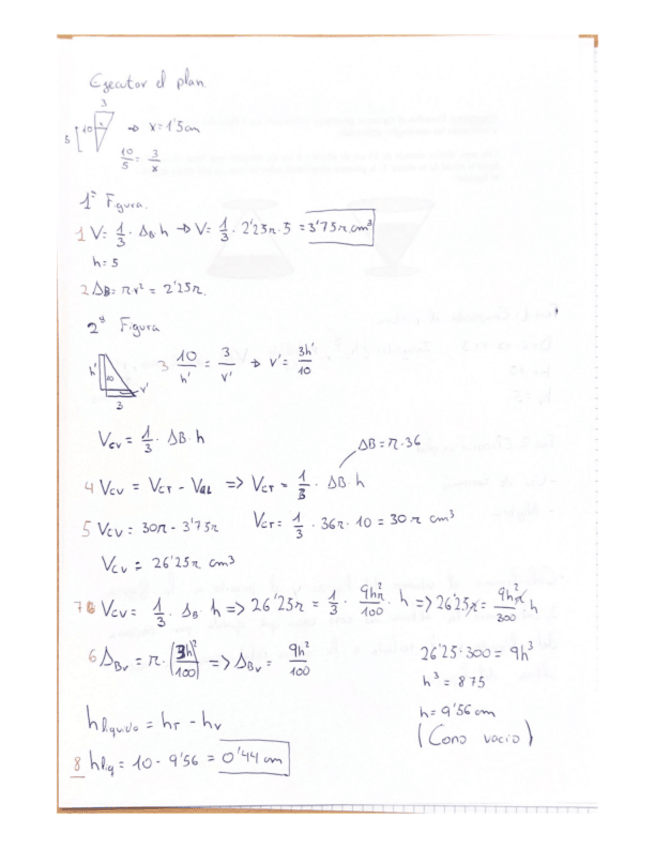 Ejecutar el plan.
3
5 10 x ⇒ x = 1'5 cm
10/5 = 3/x
1ª Figura.
1 V = 1/3 · ΔB · h → V = 1/3 · 2'25π · 5 = 3'75π cm³
h = 5
2 ΔB = πr² = 2'25π.
2ª Figura
h' 10 r' 3
3 10/h' = 3/r' → r' = 3h'/10
Vcv = 1/3 · ΔB · h
ΔB = π·36
4 Vcv = VCT - VaL => VCT = 1/3 · ΔB · h
5 Vcv = 30π - 3'75π VCT = 1/3 · 36π · 10 = 30π cm³
Vcv = 26'25π cm³
7 Vcv = 1/3 · ΔB · h => 26'25π = 1/3 · 9h²π/100 · h => 26'25π = 9h²π/300 · h
6 ΔBv = π · (3h)²/100 => ΔBv = 9h²/100
26'25 · 300 = 9h³
h³ = 875
h = 9'56 cm
(Cono vacio)
h liquido = hT - hv
8 hliq = 10 - 9'56 = 0'44 cm